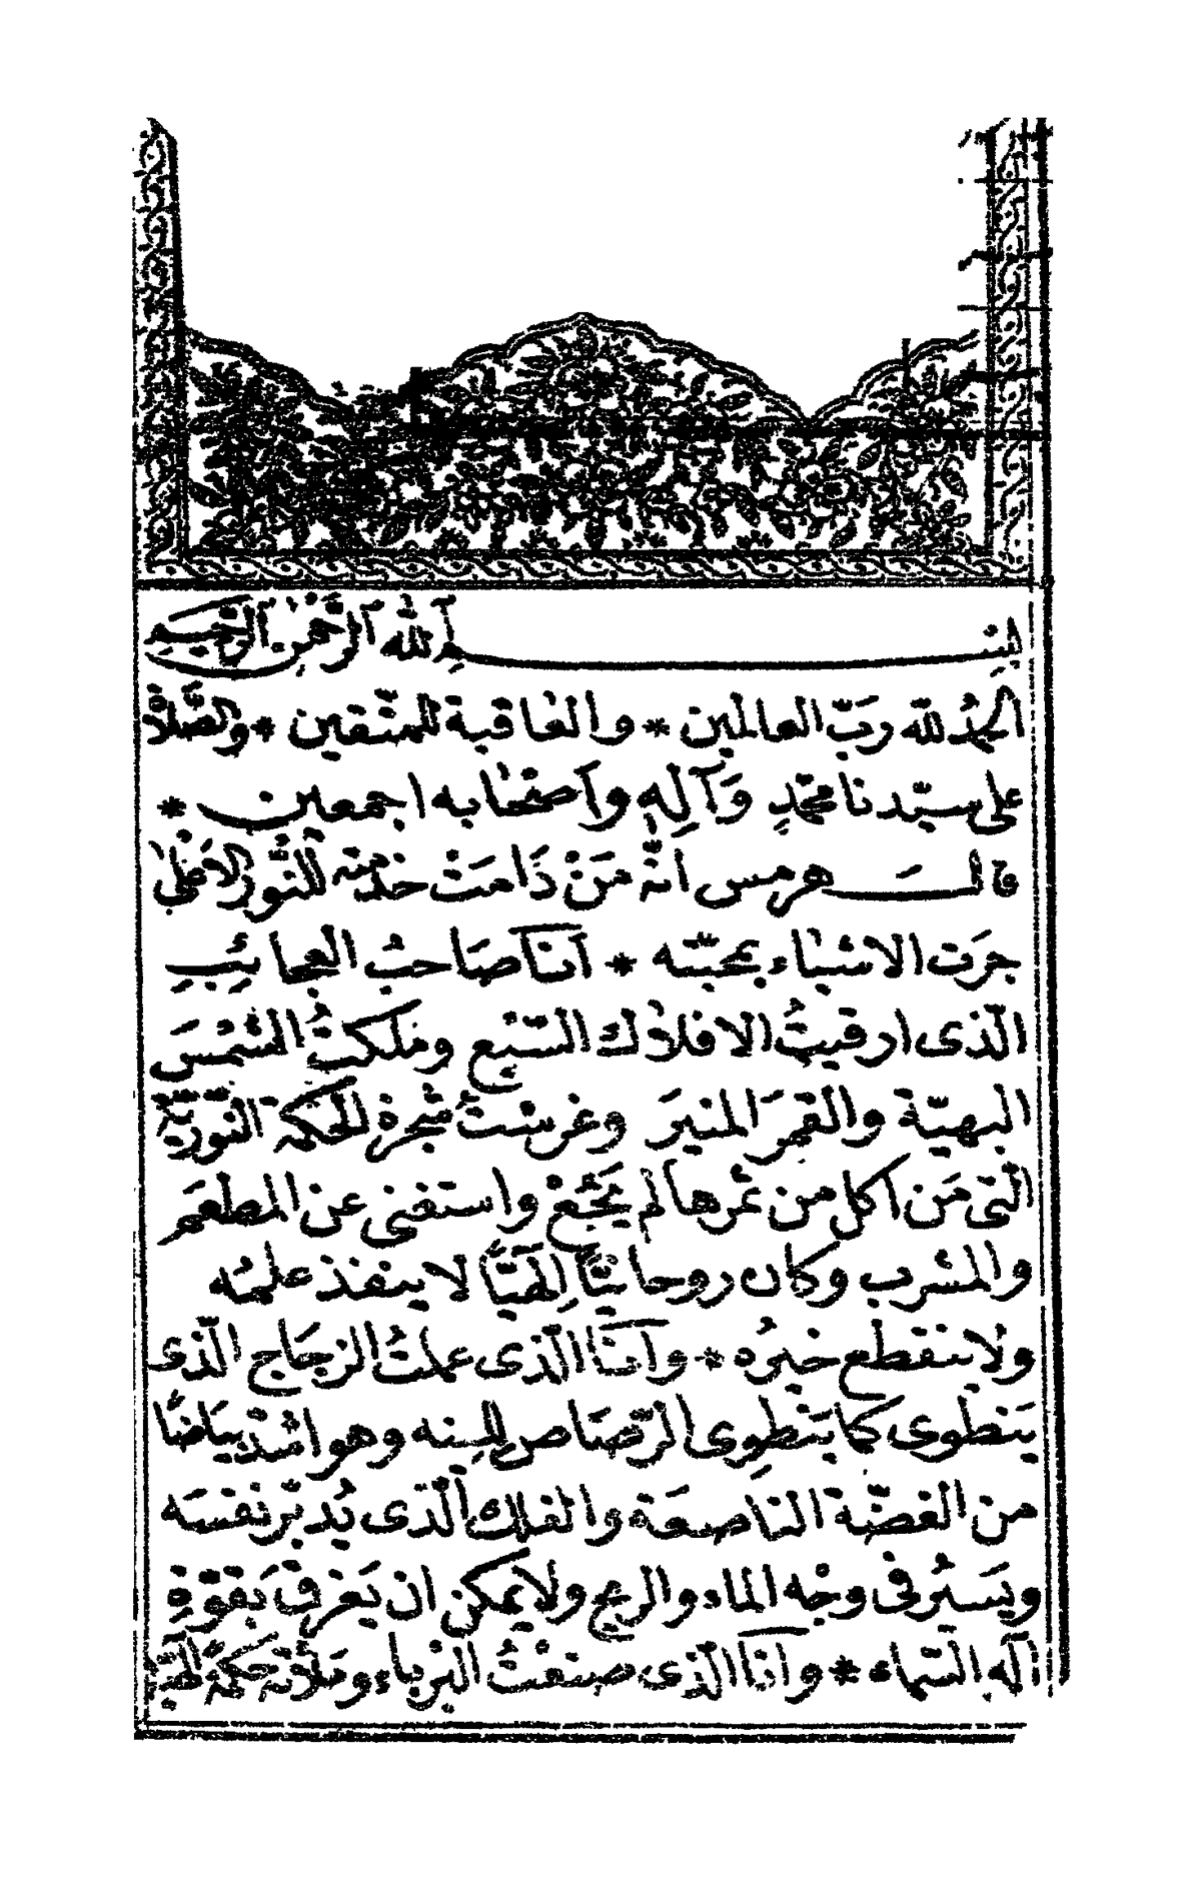 بسم الله الرحمن الرحيم
الحمدُ لله ربّ العالمين * والعاقبة للمتّقين * والصَّلاة
على سيّدنا محمّدٍ وَآلِهِ وأصحابه اجمعين *
قالَ هرمس انّه مَنْ دَامَتْ خدمته للنُّور الاعلى
جرَت الاشياء بمحبّته * أنا صَاحبُ العجائبِ
الّذى ارقيتُ الافلاك السّبع وملكتُ الشمسَ
البهيّة والقمرَ المنيرَ وغرستُ شجرة الحكمة النّوريّة
الّتى مَن اكل من ثمرها لم يَجُعْ واستغنى عن المطعَم
والمشرب وكان روحانيًّا إلهيًّا لا ينفذ علمُه
ولا ينقطع خيرُه * وأنا الّذى عملتُ الزجَاج الّذى
يَنطوى كما يَنطوِى الرّصَاص للينه وهو اشدّ بيَاضًا
من الفضّة الناصعَة والفلك الّذى يُدبّر نفسَه
ويَسيُر فى وجْه الماء والريح ولا يمكن ان يَغرق بقوّةِ
اله السّماء * وانا الّذى صنعْتُ البْرباء وملأته حكمةً الهيّة